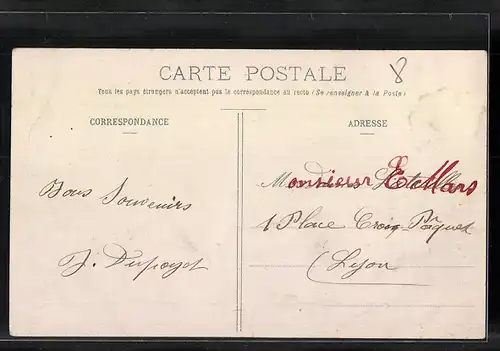 CARTE POSTALE
8
Tous les pays étrangers n'acceptent pas la correspondance au recto (Se renseigner à la Poste)
CORRESPONDANCE
ADRESSE
Bons Souvenirs
J. Dupoyet
Monsieur E. Mars
1 Place Croix-Pâquet
(Lyon)